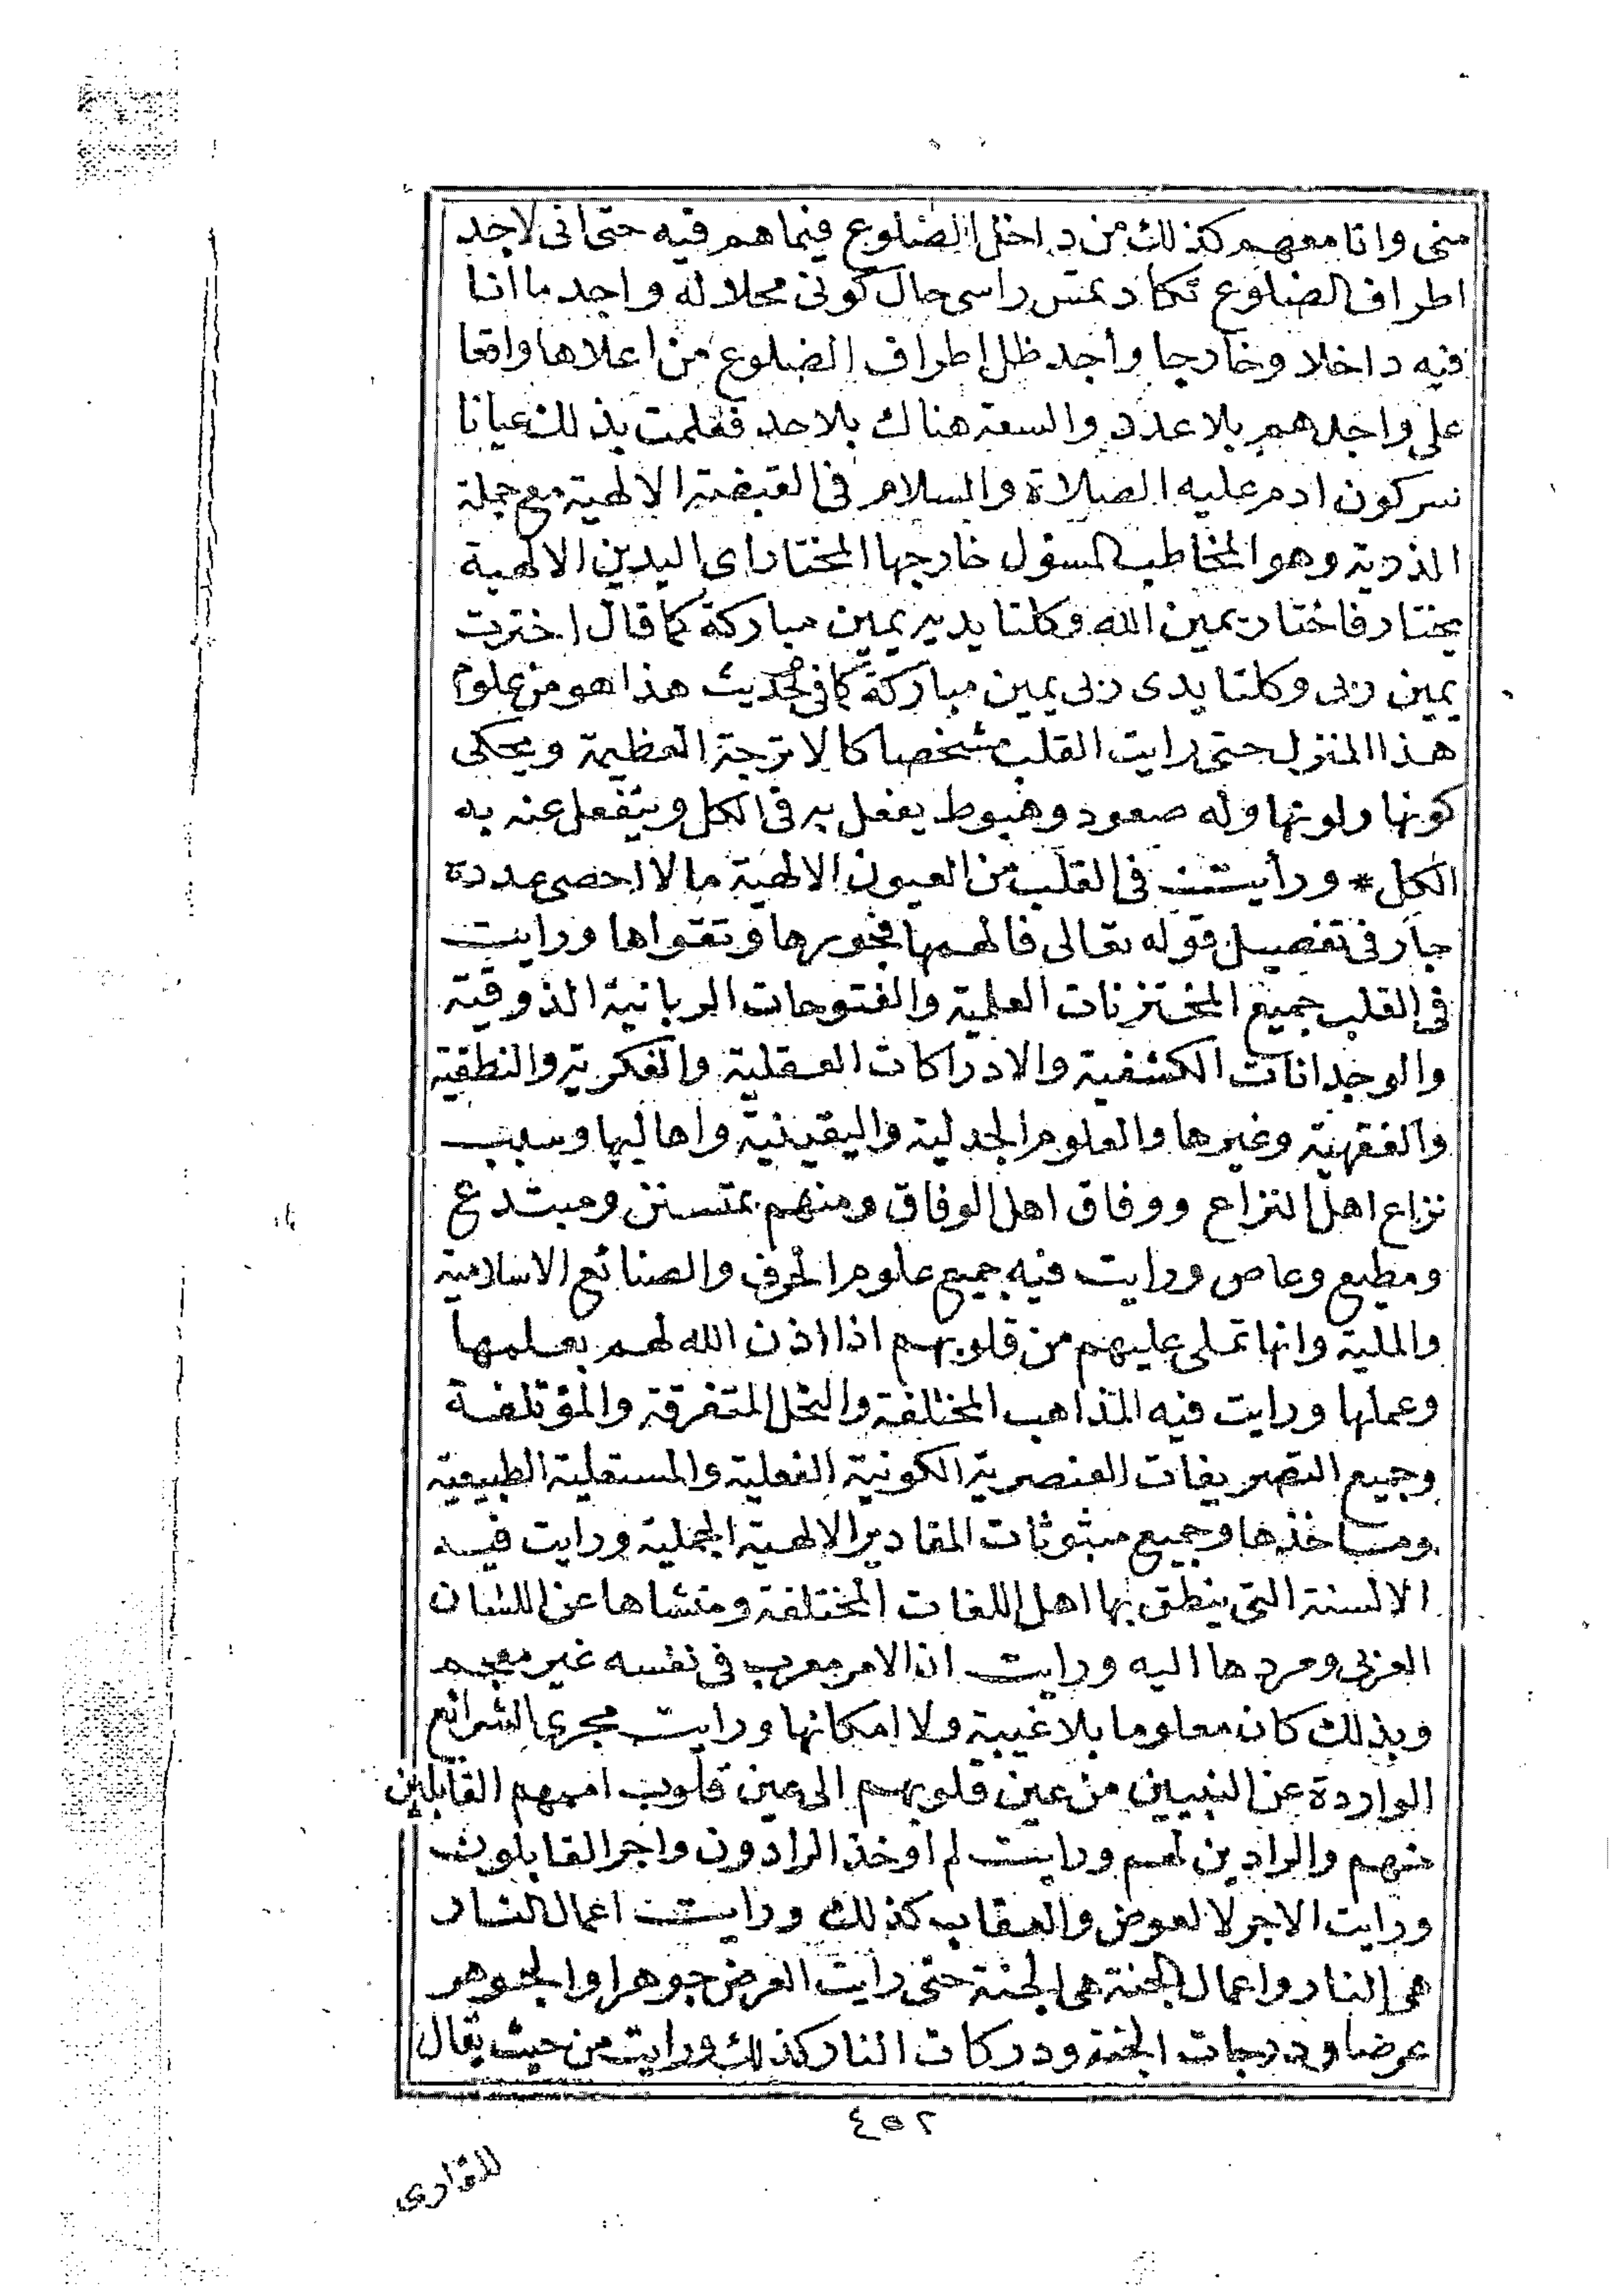 منى وانا معهم كذلك من داخل الضلوع فيما هم فيه حتى انى لاجد
اطراف الضلوع تكاد تمس راسى حال كونى محلا له واجد ما انا
فيه داخلا وخارجا واجد ظل اطراف الضلوع من اعلاها واقعا
على واجدهم بلا عدد والسعة هناك بلا حد فعلمت بذلك عيانا
سر كون ادم عليه الصلاة والسلام فى القبضة الالهية مع جملة
الذرية وهو المخاطب المسؤل خارجها المختار اى اليدين الالهية
يختار فاختار يمين الله وكلتا يديه يمين مباركة كما قال اخترت
يمين ربى وكلتا يدى ربى يمين مباركة كما فى الحديث هذا هو من علوم
هذا المنزل حتى رايت القلب مشخصا كالاترجة العظيمة ويحكى
كونها ولونها وله صعود وهبوط يفعل به فى الكل وينفعل عنه به
الكل * ورأيت فى القلب من العيون الالهية ما لا احصى عدده
جار فى تفصيل قوله تعالى فالهمها فجورها وتقواها ورايت
فى القلب جميع المختزنات العلمية والفتوحات الربانية الذوقية
والوجدانات الكشفية والادراكات العقلية والفكرية والنطقية
والفقهية وغيرها والعلوم الجدلية واليقينية واهاليها وسبب
نزاع اهل النزاع ووفاق اهل الوفاق ومنهم متسنن ومبتدع
ومطيع وعاص ورايت فيه جميع علوم الحرف والصنائع الاسلامية
والملية وانها تملى عليهم من قلوبهم اذا اذن الله لهم بعلمها
وعملها ورايت فيه المذاهب المختلفة والنحل المتفرقة والمؤتلفة
وجميع التصريفات العنصرية الكونية الفعلية والمستعلية الطبيعية
وماخذها وجميع مبثوثات المقادير الالهية الجملية ورايت فيه
الالسنة التى ينطق بها اهل اللغات المختلفة ومنشاها عن اللسان
العربى ومردها اليه ورايت ان الامر معرب فى نفسه غير معجم
وبذلك كان معلوما بلا غيبة ولا امكانها ورايت مجرى الشرائع
الواردة عن النبيين من عين قلوبهم الى عين قلوب اممهم القابلين
منهم والرادين لهم ورايت لم اوخذ الرادون واجر القابلون
ورايت الاجر لا لعوض والعقاب كذلك ورايت اعمال النار
هى النار واعمال الجنة هى الجنة حتى رايت العرض جوهرا والجوهر
عرضا ودرجات الجنة ودركات النار كذلك ورايت من حيث يقال
٤٥٢
للقوارى